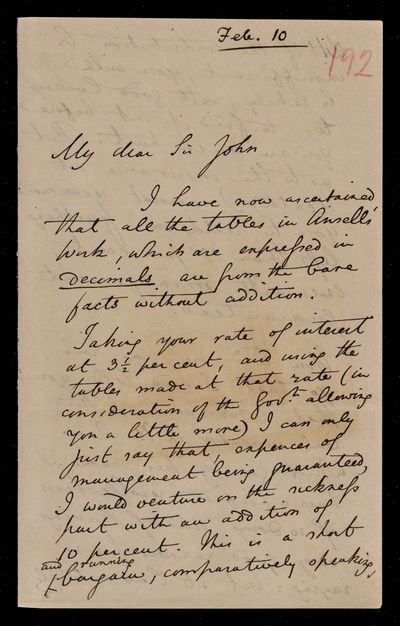 Feb. 10
192
My dear Sir John
I have now ascertained
that all the tables in Ansell's
work, which are expressed in
Decimals are from the bare
facts without addition.
Taking your rate of interest
at 3½ per cent, and using the
tables made at that rate (in
consideration of the Govt. allowing
you a little more) I can only
just say that, expences of
management being guaranteed,
I would venture on the sickness
part with an addition of
10 per cent. This is a short
and running
bargain, comparatively speaking,